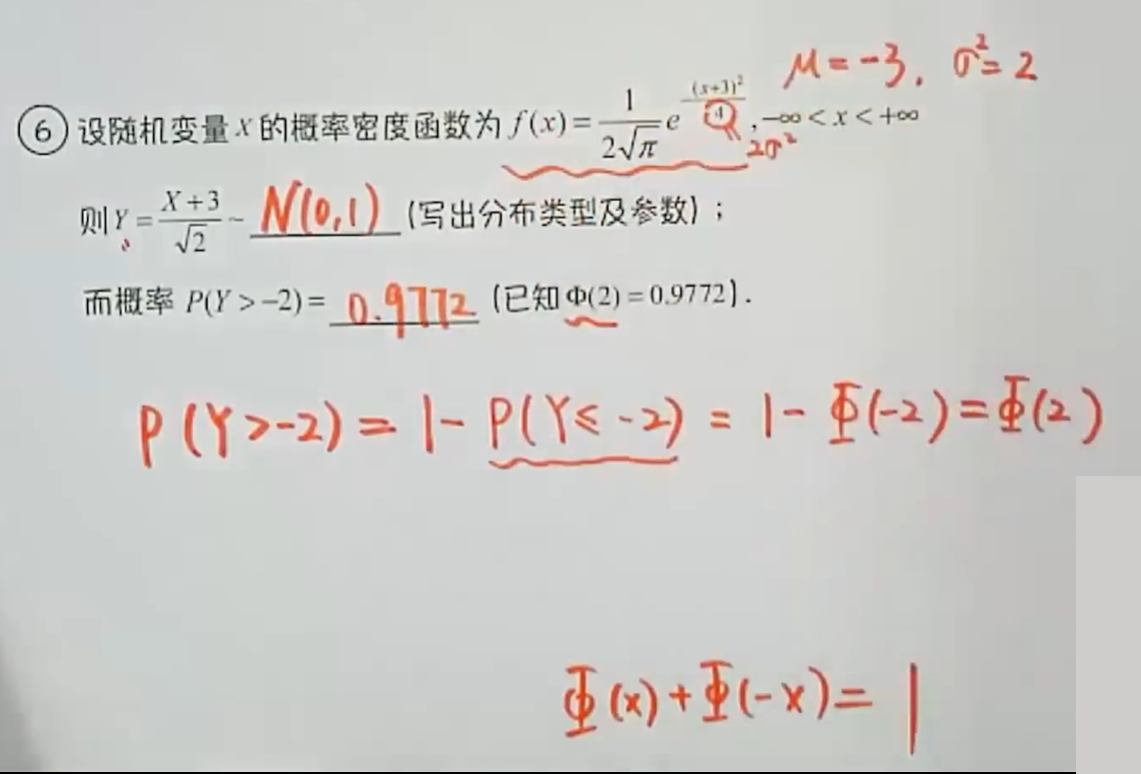 μ = -3, σ² = 2
⑥ 设随机变量 X 的概率密度函数为 f(x) = \frac{1}{2\sqrt{π}} e^{-\frac{(x+3)^2}{4}}, -∞ < x < +∞
2σ²
则 Y = \frac{X+3}{\sqrt{2}} ~ N(0,1) (写出分布类型及参数);
而概率 P(Y > -2) = 0.9772 (已知 Φ(2) = 0.9772).
P(Y > -2) = 1 - P(Y ≤ -2) = 1 - Φ(-2) = Φ(2)
Φ(x) + Φ(-x) = 1